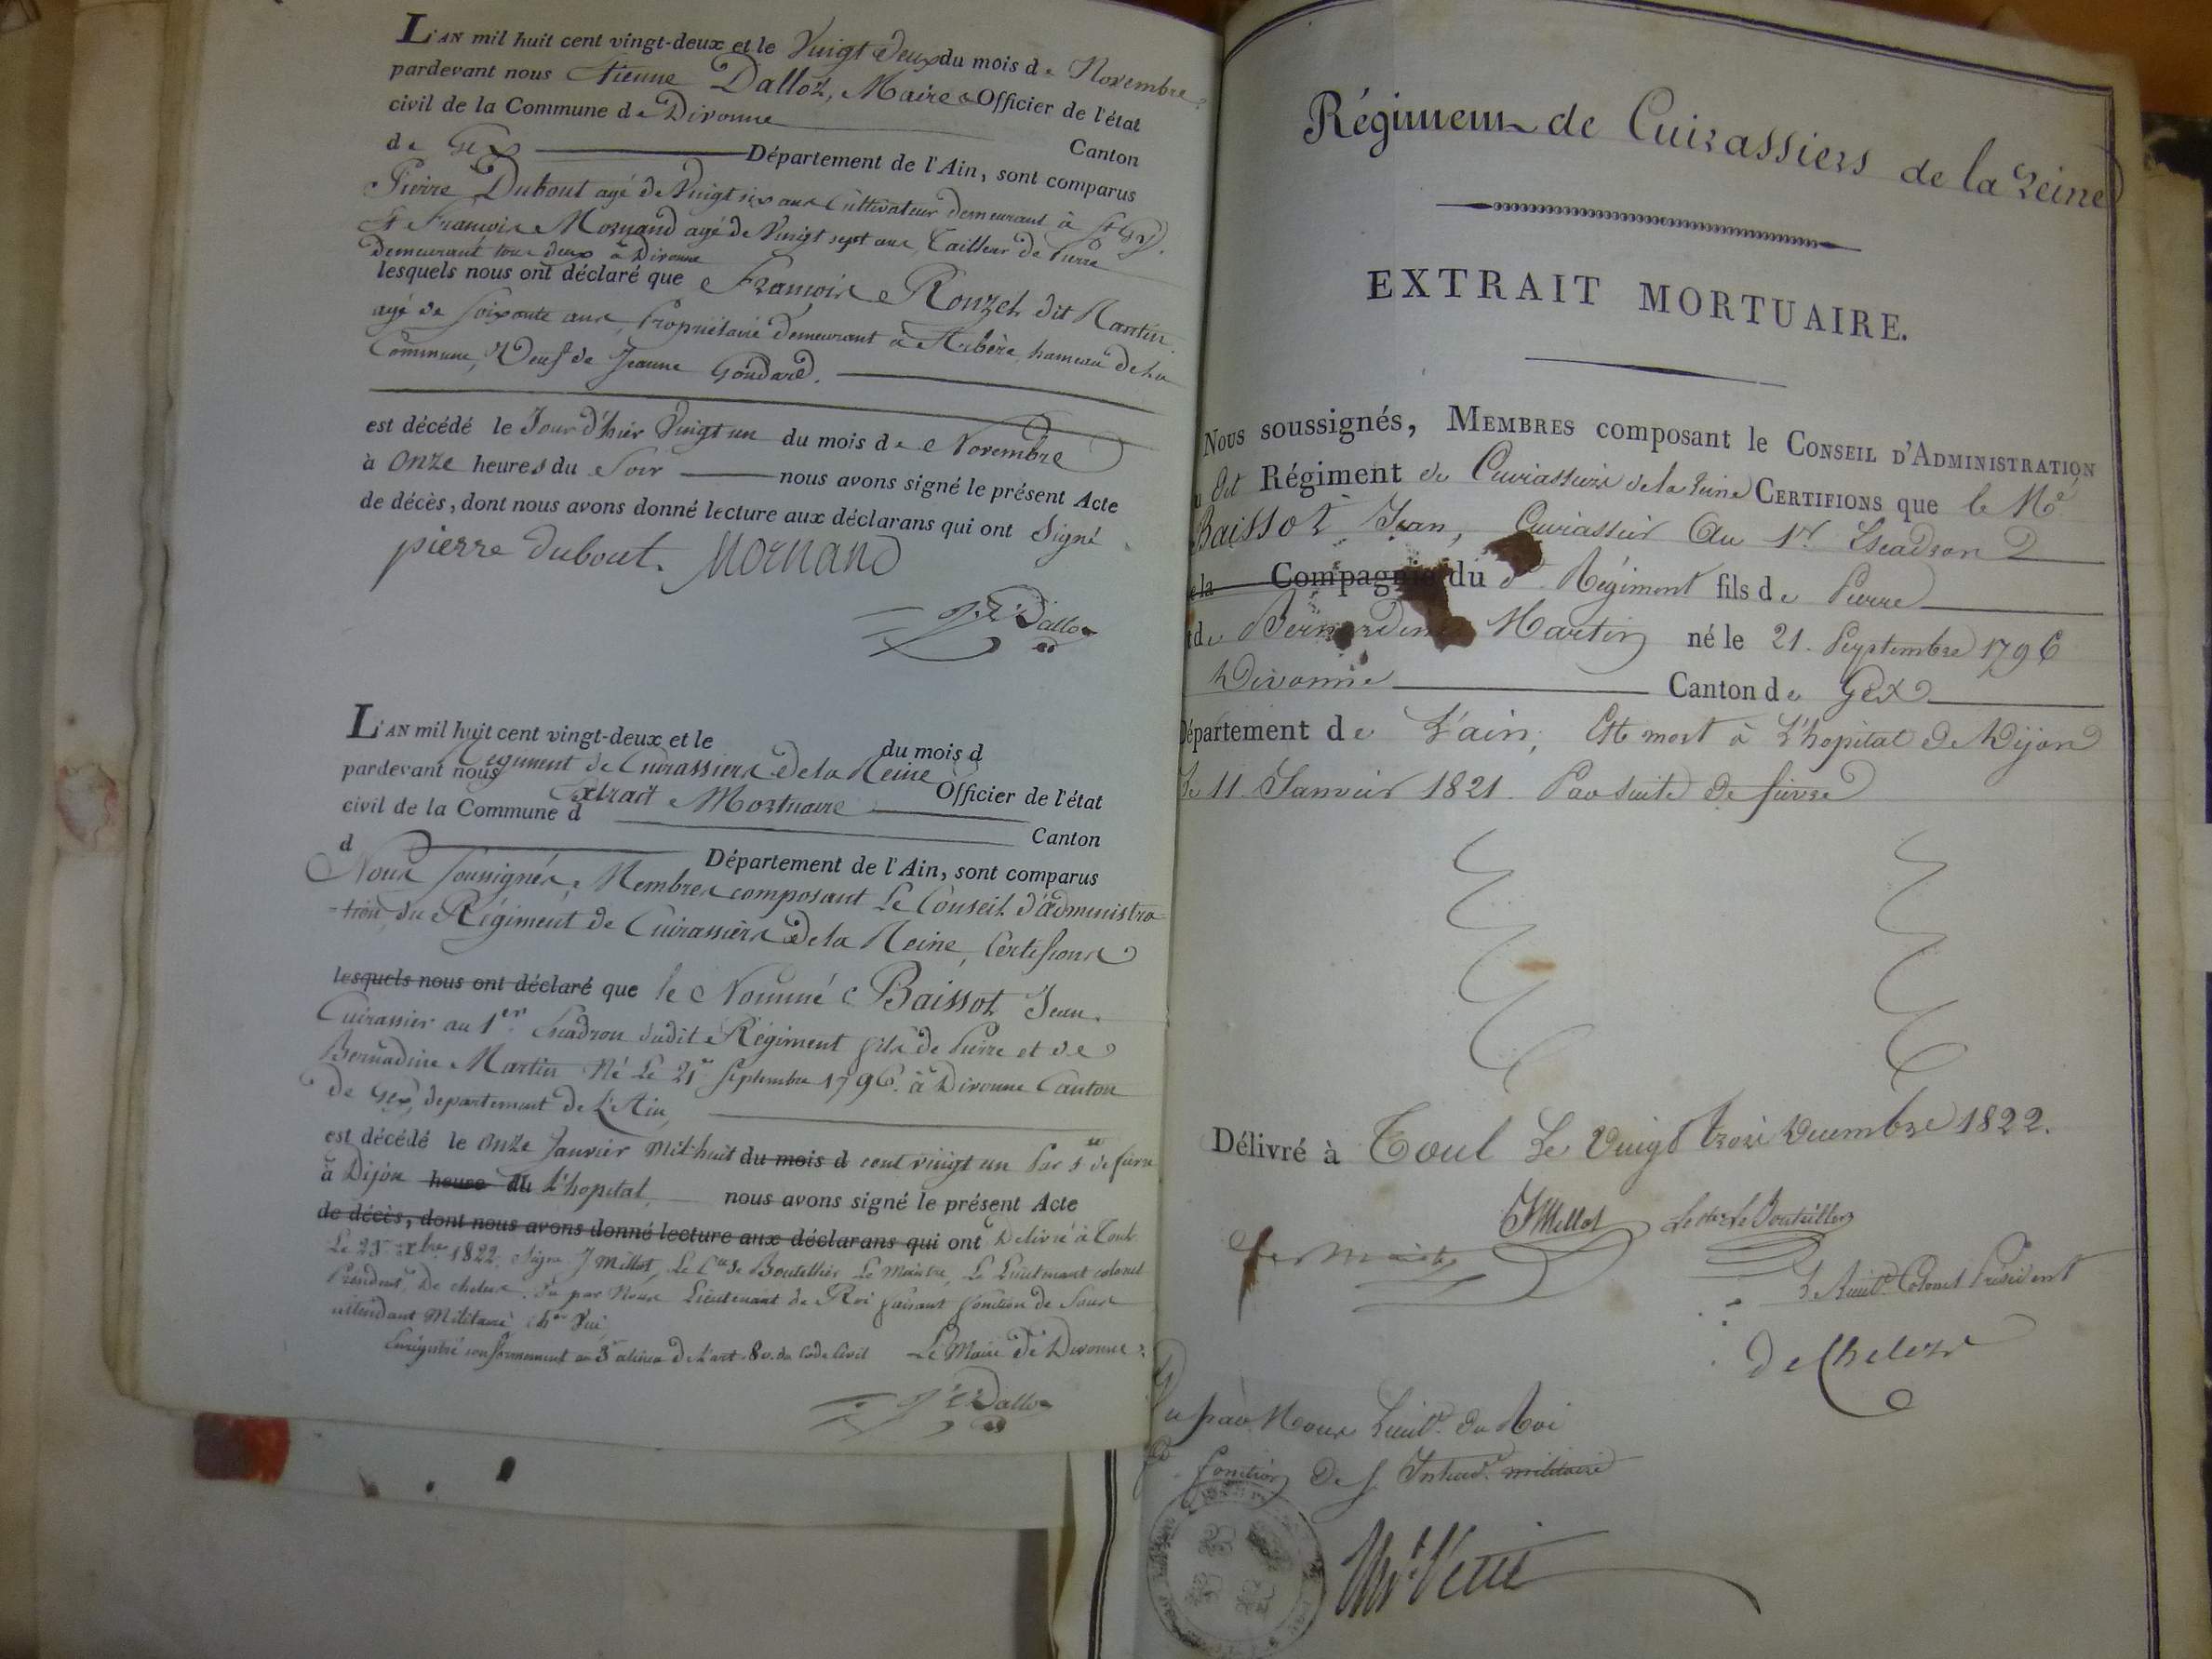 L'AN mil huit cent vingt-deux et le Vuigt deux du mois de Novembre
pardevant nous Etienne Dalloz, Maire & Officier de l'état
civil de la Commune de Divonne
Canton
de Gex Département de l'Ain, sont comparus
Pierre Dubout agé de Vuigt six ans Cultivateur demeurant à
& François Mornand agé de Vuigt sept ans, Tailleur de Pierre
Demeurant tous deux à Divonne
lesquels nous ont déclaré que François Rouzet dit Martin
agé de soixante ans, Propriétaire demeurant à Arbère, hameau de la
Commune, Veuf de Jeanne Goudard.
est décédé le Jour d'hier Vuigt un du mois de Novembre
à Onze heures du Soir nous avons signé le présent Acte
de décès, dont nous avons donné lecture aux déclarans qui ont Signé
pierre dubout. Mornand
Dalloz
L'AN mil huit cent vingt-deux et le du mois d
pardevant nous Régiment de Cuirassiers de la Reine Officier de l'état
civil de la Commune d Extrait Mortuaire
Canton
d Département de l'Ain, sont comparus
Nous soussignés, Membres composant Le Conseil d'administra-
-tion du Régiment de Cuirassiers de la Reine, Certifions
lesquels nous ont déclaré que le Nommé Baissot Jean.
Cuirassier au 1er Escadron dudit Régiment fils de Pierre et de
Bernadine Martin Né Le 21 Septembre 1796. à Divonne Canton
de Gex, departement de L'Ain,
est décédé le onze Janvier Mil huit du mois d cent vuigt un Par s te de fievre
à Dijon heure du L'hopital, nous avons signé le présent Acte
de décès, dont nous avons donné lecture aux déclarans qui ont Delivré à Toul
Le 23 xbre 1822. Signé J Millot, Le Cte Le Bouteillier Le Maistre, Le Lieutenant colonel
Président De chelers. Vu par Nous Lieutenant de Roi faisant fonction de Sous
intendant Militaire
Enrégistré conformement au 3e alinea De L'art. 80. du Code Civil Le Maire de Divonne
Dalloz
Régiment de Cuirassiers de la Reine
EXTRAIT MORTUAIRE.
Nous soussignés, MEMBRES composant le CONSEIL D'ADMINISTRATION
dit Régiment de Cuirassiers de la Reine CERTIFIONS que le Né
Baissot Jean, Cuirassier Au 1er Escadron
de la Compagnie du d Régiment fils de Pierre
t de Bernardine Martin né le 21. Septembre 1796
à Divonne Canton de Gex
Département de L'ain, Est mort à L'hopital de Dijon
Le 11 Janvier 1821. Par Suite de fievre
Délivré à Toul Le Vuigt trois Decembre 1822.
JMillot Le Bouteiller
Le Maistre
Le Lieut. Colonel Président
De Chelers
Vu par Nous Lieut. du Roi
fonction De S Intend. militaire